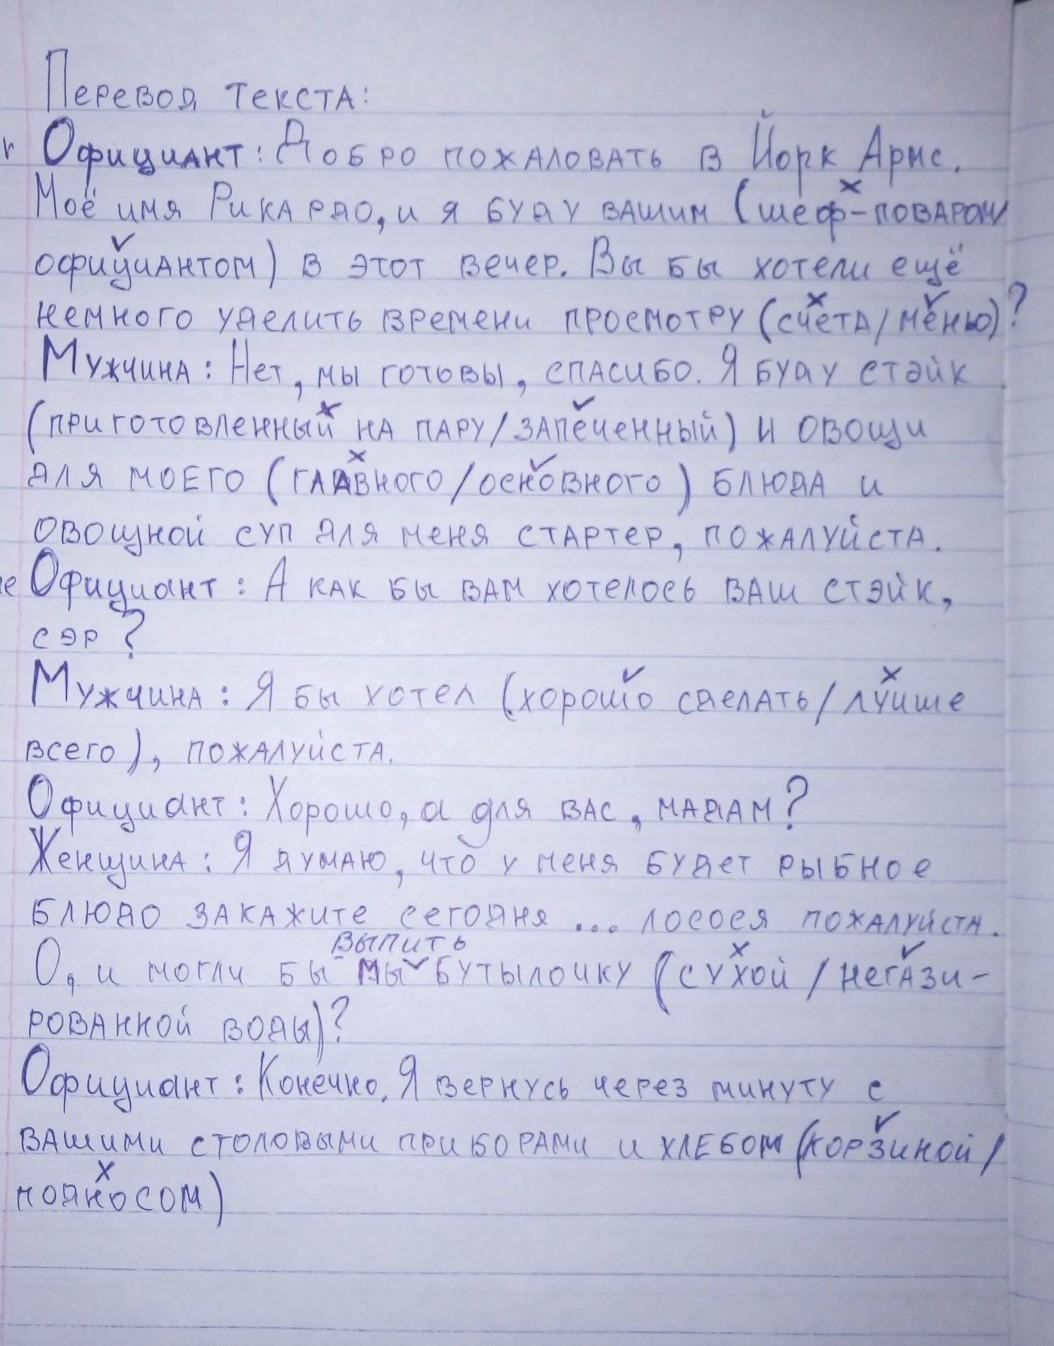 Перевод текста:
Официант: Добро пожаловать в Йорк Армс.
Моё имя Рикардо, и я буду вашим (шеф-поваром/
официантом) в этот вечер. Вы бы хотели ещё
немного уделить времени просмотру (счёта/меню)?
Мужчина: Нет, мы готовы, спасибо. Я буду стэйк
(приготовленный на пару/запеченный) и овощи
для моего (главного/основного) блюда и
овощной суп для меня стартер, пожалуйста.
Официант: А как бы вам хотелось ваш стэйк,
сэр?
Мужчина: Я бы хотел (хорошо сделать/лучше
всего), пожалуйста.
Официант: Хорошо, а для вас, мадам?
Женщина: Я думаю, что у меня будет рыбное
блюдо закажите сегодня ... лосося пожалуйста.
выпить
О, и могли бы мы бутылочку (сухой/негази-
рованной воды)?
Официант: Конечно. Я вернусь через минуту с
вашими столовыми приборами и хлебом (корзиной/
подносом)